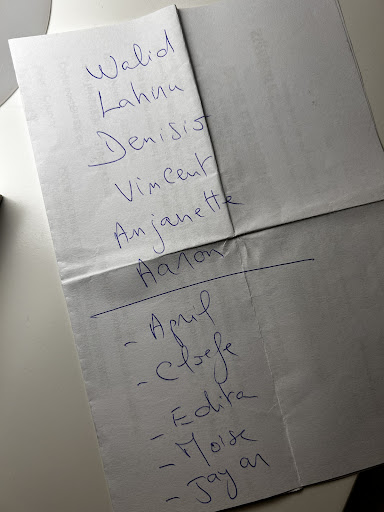 Walid
Lahna
Denisis
Vincent
Anjanette
Aaron
- April
- Edita
- Moise
- Jayan